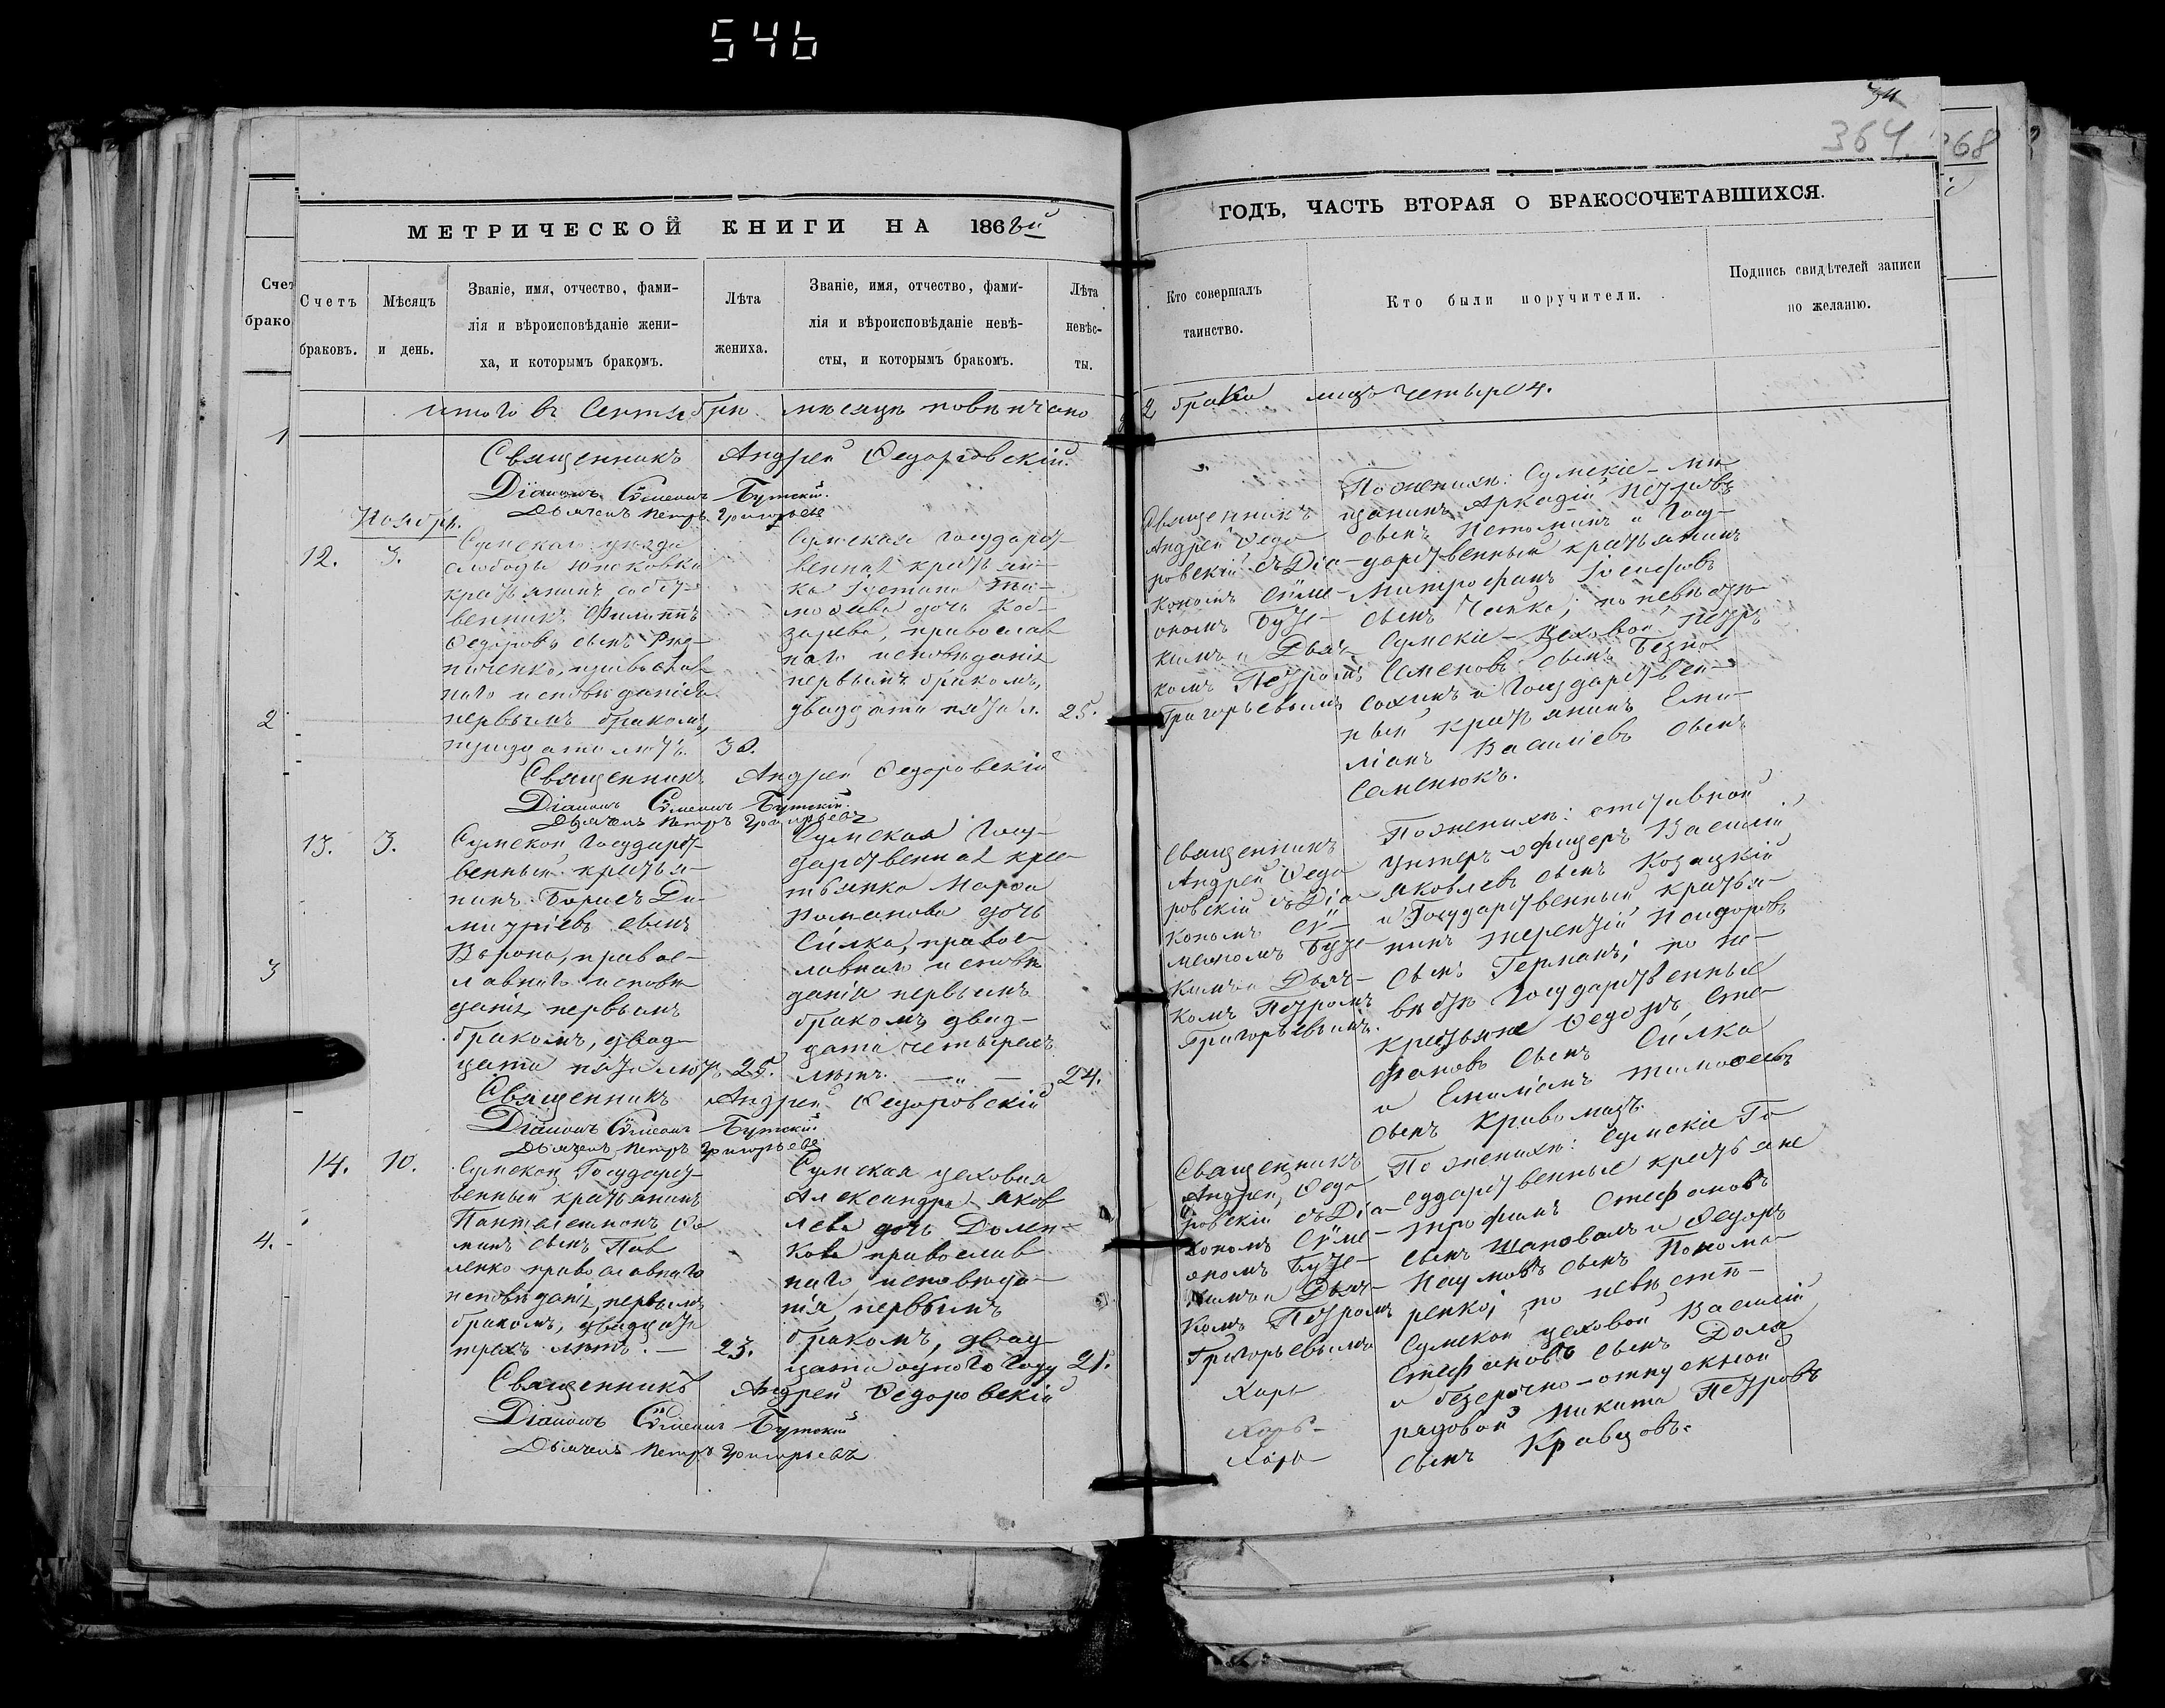 546
34
364.
268
МЕТРИЧЕСКОЙ КНИГИ НА 1868й
ГОДЪ, ЧАСТЬ ВТОРАЯ О БРАКОСОЧЕТАВШИХСЯ.
Счет
брако
1
2
3
4.
Счетъ
браковъ.
Мѣсяцъ
и день.
Званіе, имя, отчество, фами-
лія и вѣроисповѣданіе жени-
ха, и которымъ бракомъ.
Лѣта
жениха.
Званіе, имя, отчество, фами-
лія и вѣроисповѣданіе невѣ-
сты, и которымъ бракомъ.
Лѣта
невѣс-
ты.
Кто совершалъ
таинство.
Кто были поручители.
Подпись свидѣтелей записи
по желанію.
итого въ Сентябрѣ мѣсяцѣ повѣнчано
2 брака лицъ четыре 4.
Священникъ Андрей Ѳедоровскій.
Діаконъ Сѵмеонъ Бутскій.
Дьячекъ Петръ Григорьевъ
Ноябрь.
12.
3.
Сумскаго уѣзда
слободы Юнаковки
крестьянинъ собст-
венникъ Филиппъ
Ѳедоровъ сынъ
православ
наго исповѣданія
первымъ бракомъ,
тридцати лѣтъ. 30.
Сумская государст
венная крестьян-
ка Іустина Ти-
моѳеева дочь Коб-
зарева, православ
наго исповѣданія
первымъ бракомъ,
двадцати пяти л. 25.
Священникъ
Андрей Ѳедо
ровскій съ Діа-
кономъ Сѵме-
ономъ Бутс-
кимъ и Дьяч-
комъ Петромъ
Григорьевымъ
По женихѣ: Сумскіе – мѣ
щанинъ Аркадій Петровъ
сынъ Истоминъ и Госу-
дарственный крестьянинъ
Митрофанъ Іосифовъ
сынъ Чапка; по невѣстѣ
Сумскіе – Цеховой Петръ
Семеновъ сынъ Безпо
сохинъ и Государствен-
ный крестьянинъ Еми-
ліанъ Василіевъ сынъ
Семенюкъ.
Священникъ Андрей Ѳедоровскій
Діаконъ Сѵмеонъ Бутскій.
Дьячекъ Петръ Григорьевъ
13.
3.
Сумской Государст-
венный крестья-
нинъ Борисъ Ди-
митріевъ сынъ
Ворона, правос-
лавнаго исповѣ
данія первымъ
бракомъ, двад-
цати пяти лѣтъ 25.
Сумская Госу-
дарственная крес-
тьянка Марѳа
Романова дочь
Силка, правос-
лавнаго исповѣ
данія первымъ
бракомъ, двад-
цати четырехъ
лѣтъ. — „ — 24.
Священникъ
Андрей Ѳедо
ровскій съ Діа-
кономъ Сѵ-
меономъ Бутс-
кимъ и Дьяч-
комъ Петромъ
Григорьевымъ.
По женихѣ: отставной
унтеръ-офицеръ Василій
Яковлевъ сынъ Козацкій
и Государственный крестья-
нинъ Терентій Исидоровъ
сынъ Германъ; по не-
вѣстѣ Государственные
крестьяне Ѳедотъ Сте-
фановъ сынъ Силка
и Емиліанъ Тимоѳеевъ
сынъ Кривомазъ.
Священникъ Андрей Ѳедоровскій
Діаконъ Сѵмеонъ Бутскій
Дьячекъ Петръ Григорьевъ
14.
10.
Сумской Государст-
венный крестьянинъ
Пантелеимонъ Ѳо
минъ сынъ Пав
ленко православнаго
исповѣданія, первымъ
бракомъ, двадцати
трехъ лѣтъ. — 23.
Сумская цеховая
Александра Яков
лева дочь Долен-
кова православ
наго исповѣда-
нія, первымъ
бракомъ, двад
цати одного году 21.
Священникъ
Андрей Ѳедо-
ровскій съ Діа-
кономъ Сѵме-
ономъ Бутс-
кимъ и Дьяч-
комъ Петромъ
Григорьевымъ
По женихѣ: Сумскіе Го
сударственные крестьяне
Трофимъ Стефановъ
сынъ Шаповалъ и Ѳедоръ
Наумовъ сынъ Понома-
ренко; по невѣстѣ –
Сумской цеховой Василій
Стефановъ сынъ Доля
и безсрочно-отпускной
рядовой Никита Петровъ
сынъ Кравцовъ.
Священникъ Андрей Ѳедоровскій
Діаконъ Сѵмеонъ Бутскій
Дьячекъ Петръ Григорьевъ